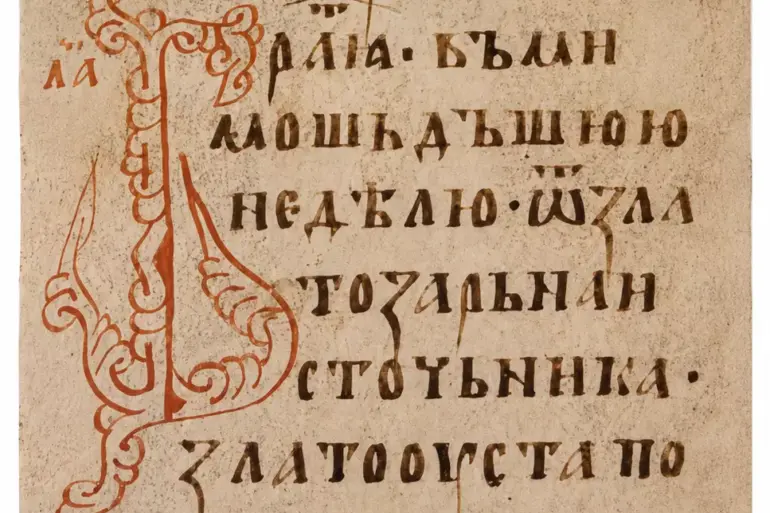 л҃а
Браⷮꙗ · въ ми
мошьдъшюю
недѣлю · ѿ зла
тозарьна и
сточьника ·
златооуста по